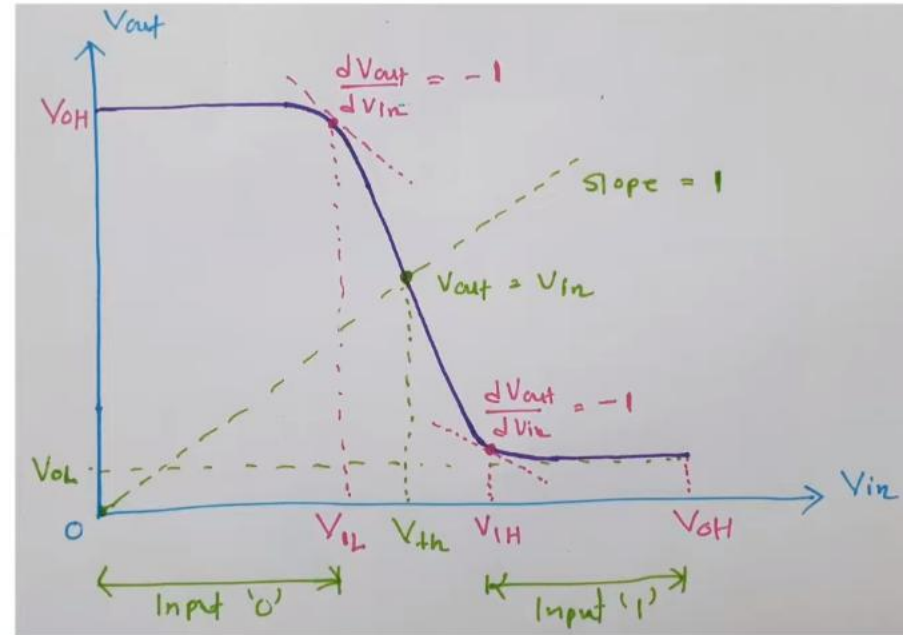 Vout
dVout
dVin
= -1
VOH
slope = 1
Vout = Vin
dVout
dVin
= -1
VOL
Vin
0
VIL
Vth
VIH
VOH
Input '0'
Input '1'